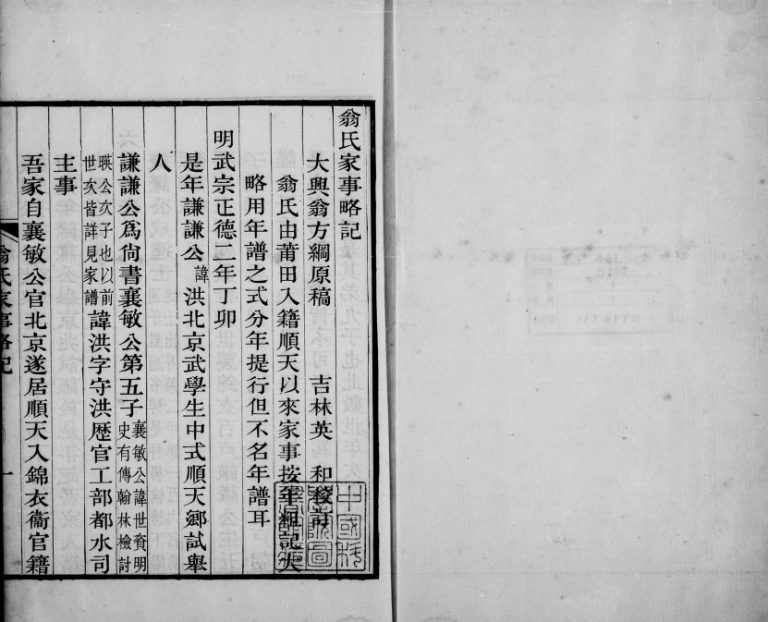 翁氏家事略記
大興翁方綱原稿　吉林英　和校訂
翁氏由莆田入籍順天以來家事按年粗記大
略用年譜之式分年提行但不名年譜耳
明武宗正德二年丁卯
是年謙謙公諱洪北京武學生中式順天鄉試舉
人
謙謙公爲尙書襄敏公第五子襄敏公諱世資明史有傳翰林檢討
瑛公次子也以前世次皆詳見家譜諱洪字守洪歷官工部都水司
主事
吾家自襄敏公官北京遂居順天入錦衣衞官籍
翁氏家事略記
一